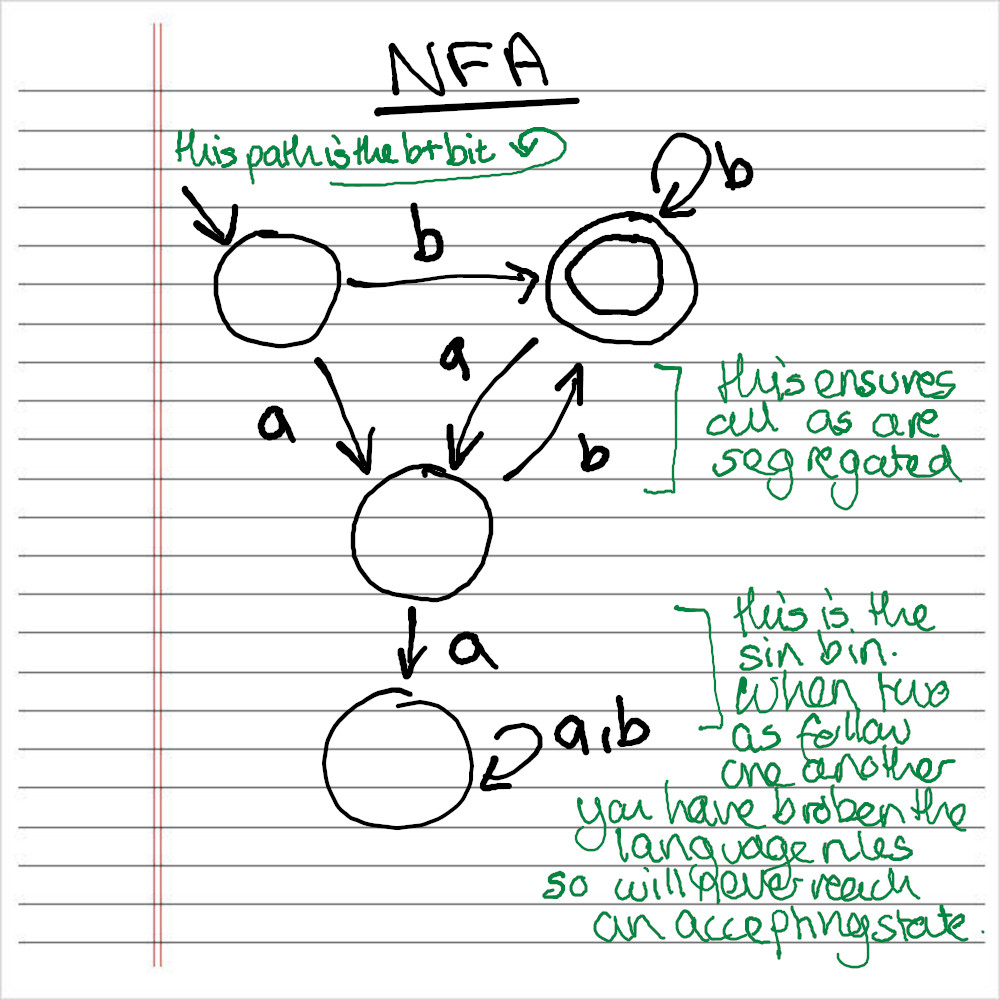 NFA
this path is the b+ bit
b
b
a
a
b
this ensures
all as are
segregated
a
a,b
this is the
sin bin.
when two
as follow
one another
you have broken the
language rules
so will never reach
an accepting state.